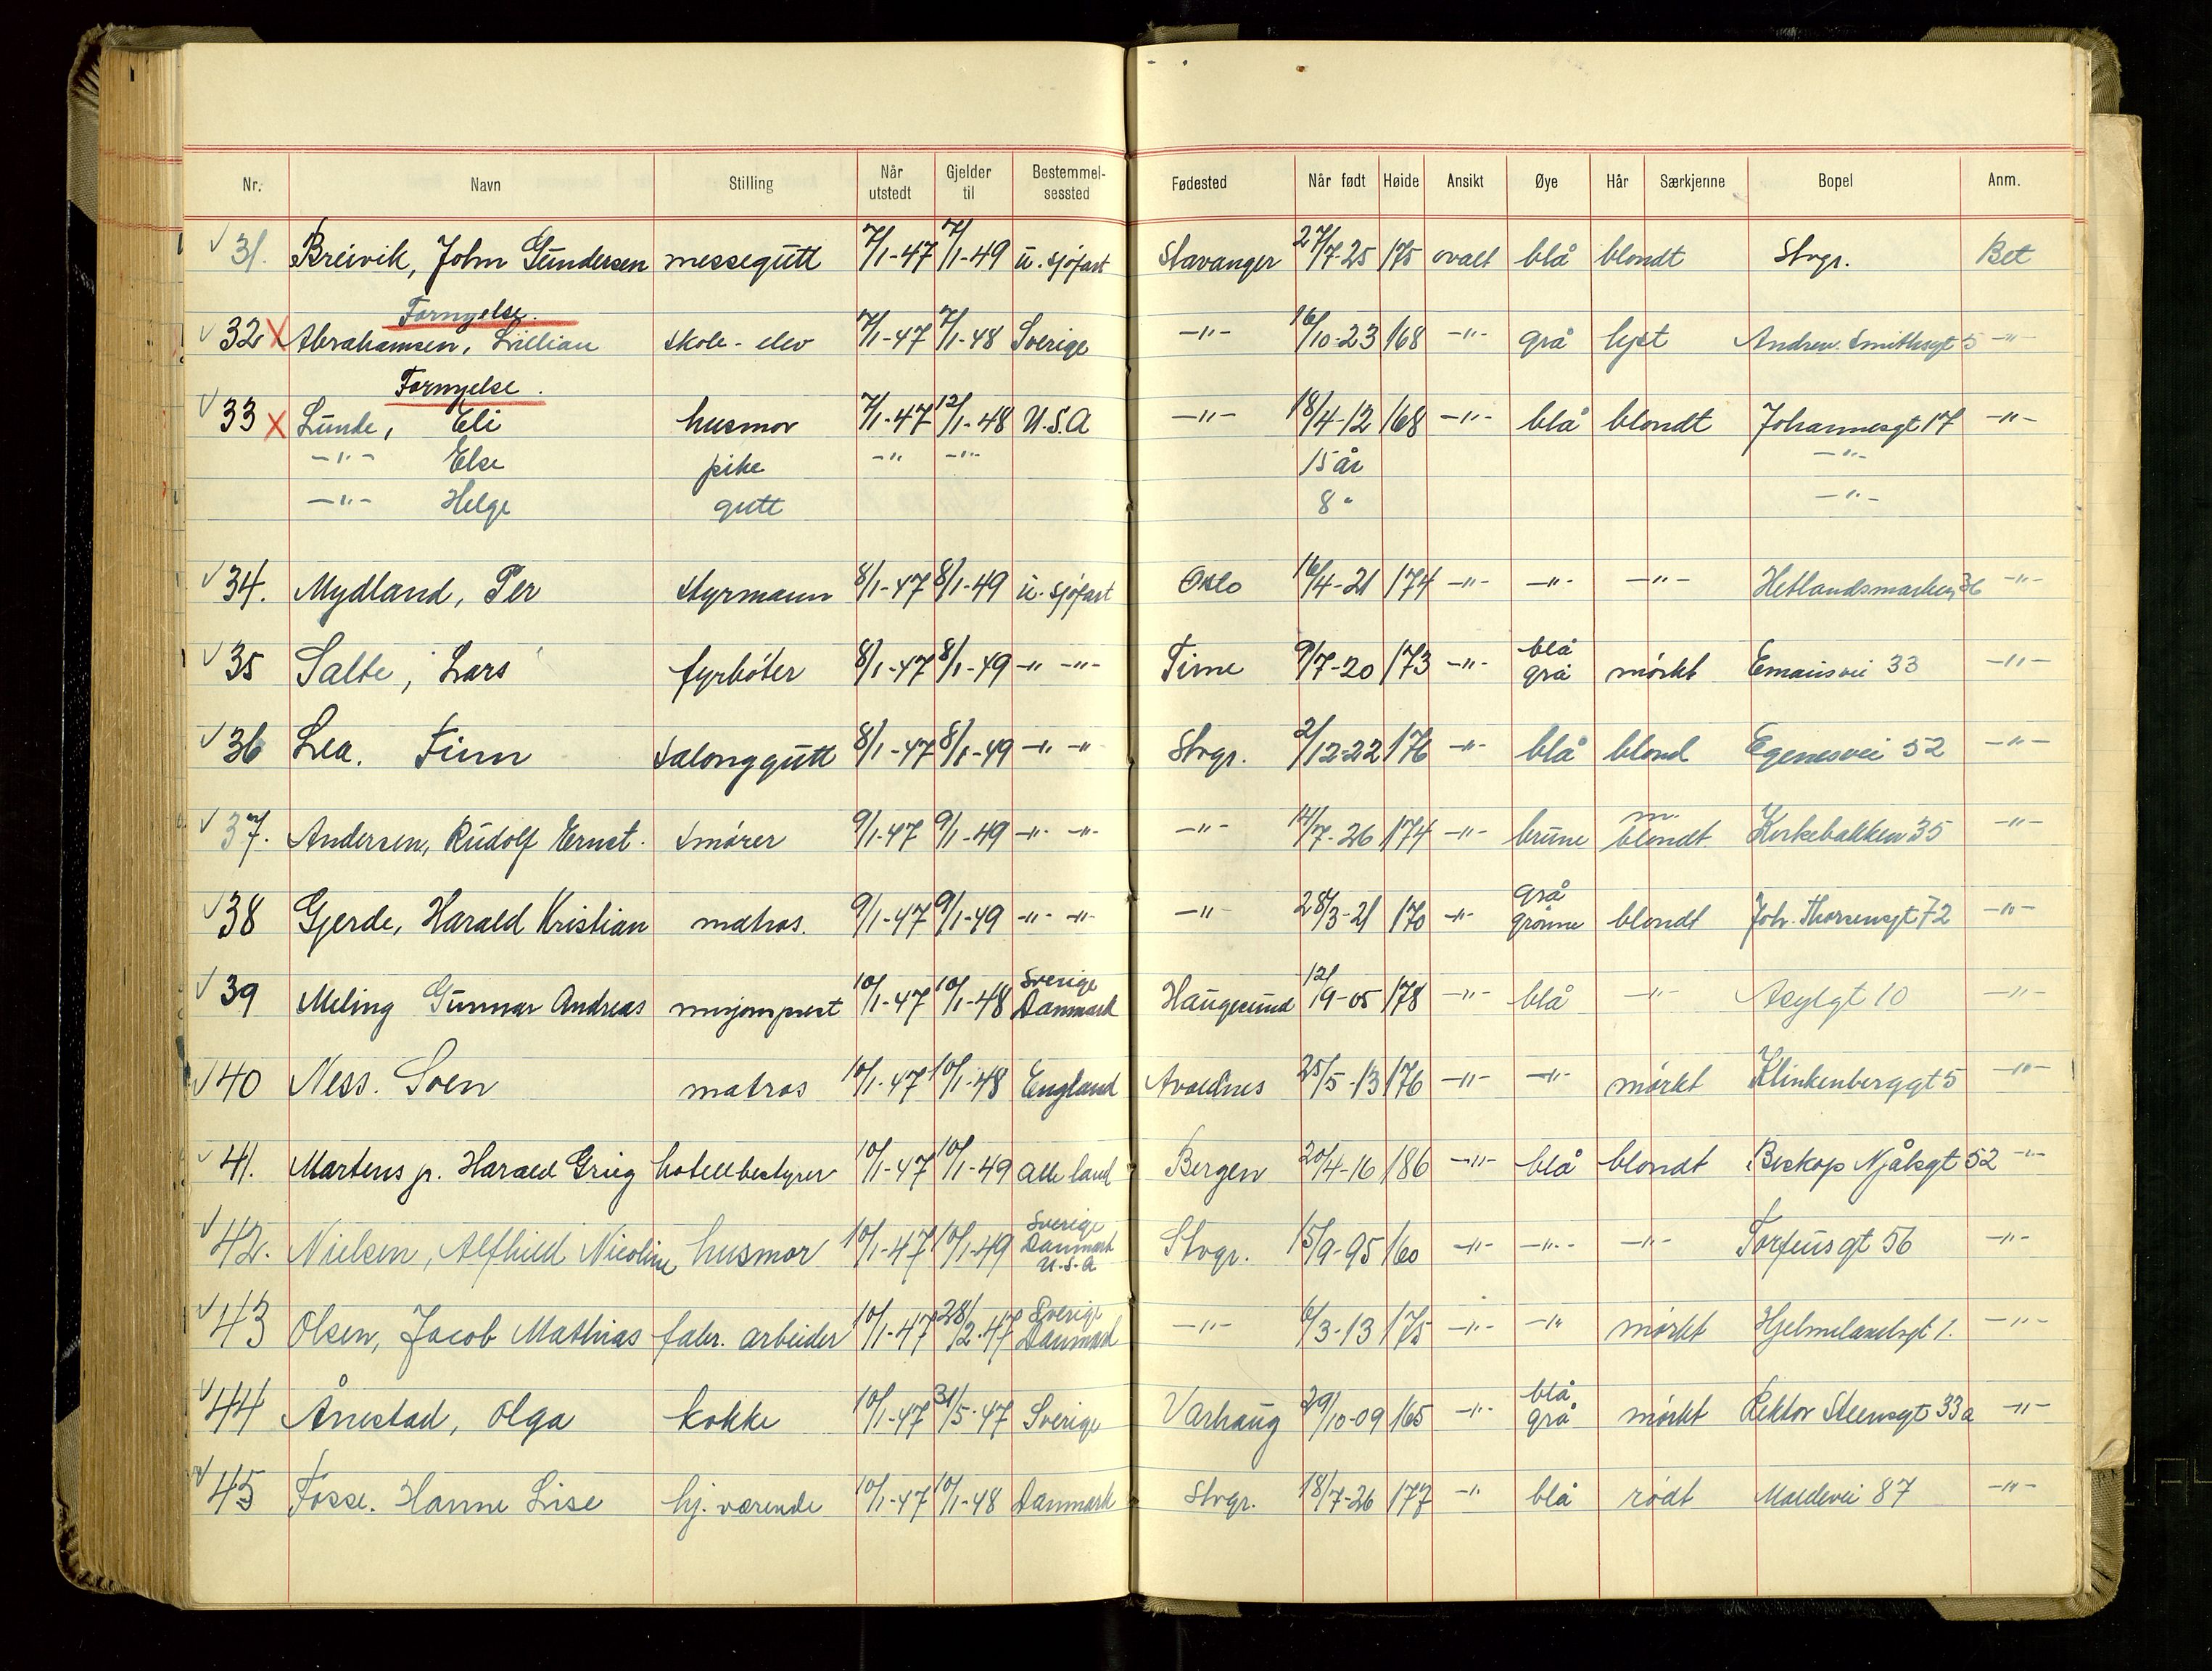 Nr. Navn Stilling Når utstedt Gjelder til Bestemmelsessted Fødested Når født Høide Ansikt Øye Hår Særkjenne Bopel Anm.
31. Breivik, John Gundersen messegutt 7/1-47 7/1-49 u. sjøfart Stavanger 27/7-25 175 ovalt blå blondt Stvgr. Bet
Fornyelse.
32 X Abrahamsen, Lillian skole-elev 7/1-47 7/1-48 Sverige -"- 16/10-23 168 -"- grå lyst Andrew Smithsgt 5 -"-
Fornyelse.
33 X Lunde, Eli husmor 7/1-47 12/1-48 U.S.A -"- 18/4-12 168 -"- blå blondt Johannesgt 17 -"-
-"- Else pike -"- -"- 15 år -"-
-"- Helge gutt 8 " -"-
34. Mydland, Per styrmann 8/1-47 8/1-49 u. sjøfart Oslo 16/4-21 174 -"- -"- -"- Hetlandsmarken 36 -"-
35 Salte, Lars fyrbøter 8/1-47 8/1-49 -"- -"- Time 9/7-20 173 -"- blå grå mørkt Emausvei 33 -"-
36 Lea. Finn salonggutt 8/1-47 8/1-49 -"- -"- Stvgr. 2/12-22 176 -"- blå blond Egenesvei 52 -"-
37. Andersen, Rudolf Ernst. smører 9/1-47 9/1-49 -"- -"- -"- 14/7-26 174 -"- brune m. blondt Kirkebakken 35 -"-
38 Gjerde, Harald Kristian matros. 9/1-47 9/1-49 -"- -"- -"- 28/3-21 170 -"- grå grønne blondt Joh. Thorsensgt 72 -"-
39 Meling Gunnar Andreas misjonsprest 10/1-47 10/1-48 Sverige Danmark Haugesund 12/9-05 178 -"- blå -"- Asylgt 10 -"-
40 Ness. Sven matros 10/1-47 10/1-48 England Avaldnes 25/5-13 176 -"- -"- mørkt Klinkenberggt 5 -"-
41. Martens jr. Harald Grieg hotellbestyrer 10/1-47 10/1-49 alle land Bergen 20/4-16 186 -"- blå blondt Biskop Njålsgt 52 -"-
42. Nielsen, Alfhild Nicoline husmor 10/1-47 10/1-49 Sverige Danmark U.S.A Stvgr. 15/9-95 160 -"- -"- -"- Torfeusgt 56 -"-
43 Olsen, Jacob Mathias fabr. arbeider 10/1-47 28/2-47 Sverige Danmark -"- 6/3-13 175 -"- -"- mørkt Hjelmelandsgt 1. -"-
44 Ånestad, Olga kokke 10/1-47 31/5-47 Sverige Varhaug 29/10-09 165 -"- blå grå mørkt Rektor Steensgt 33a -"-
45 Fosse. Hanne Lise hj. værende 10/1-47 10/1-48 Danmark Stvgr. 18/7-26 177 -"- blå rødt Maldevei 87 -"-